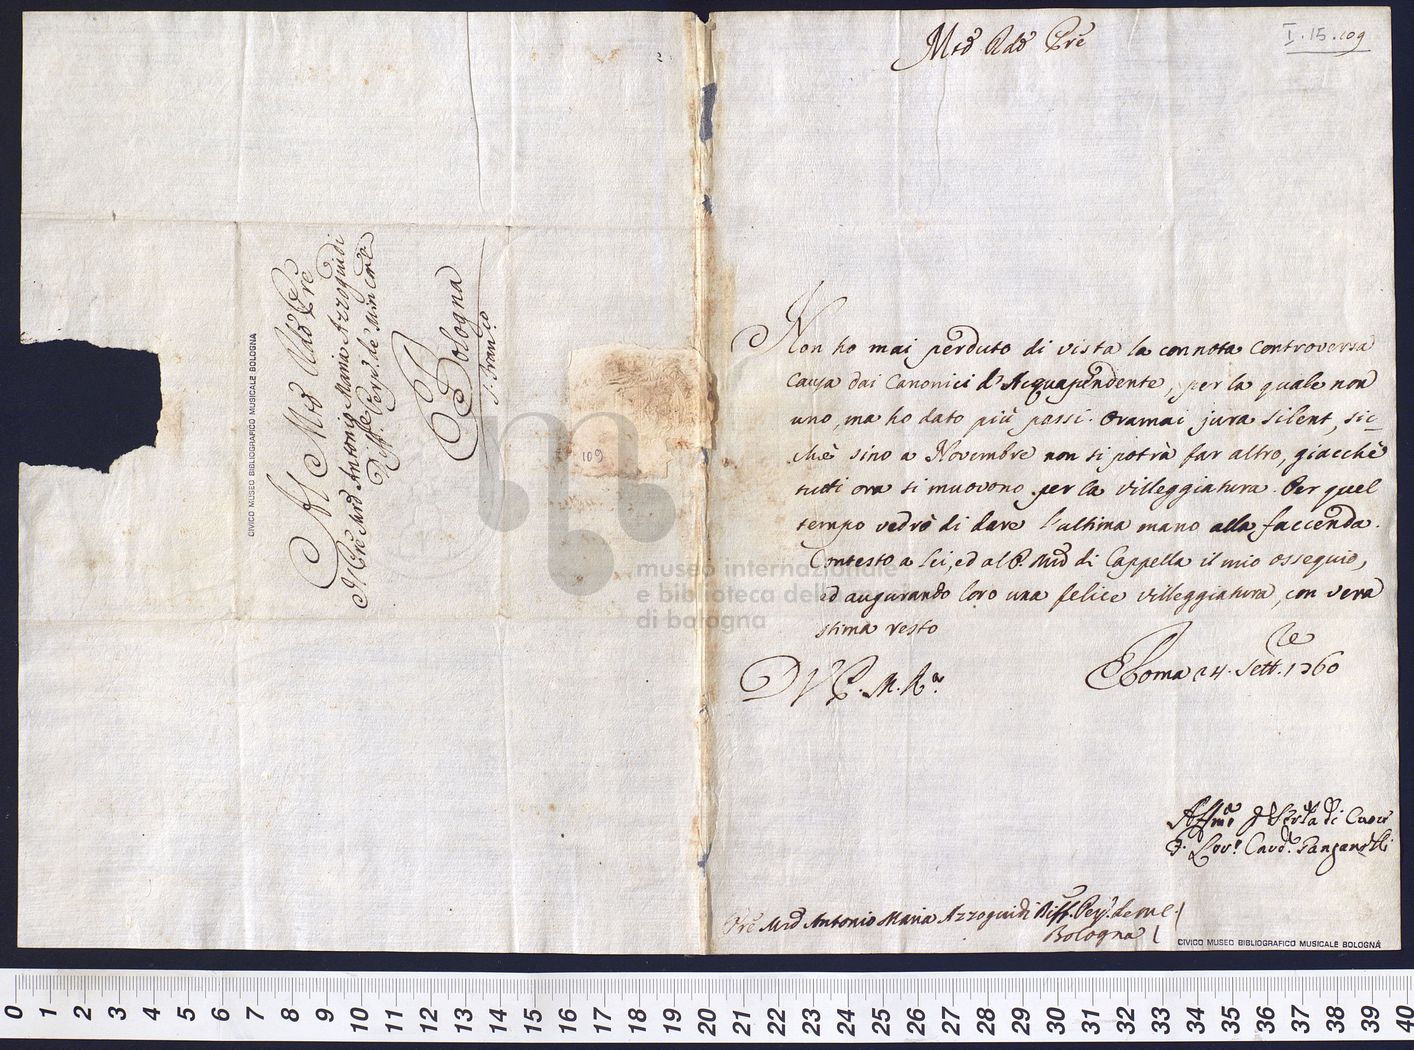 Al Mtō Rdō Prē
Il Prē Mrō Antonio Maria Azzoguidi
Diff.re Perp. de' Min. Conv.
Bologna
S. Franc.o
CIVICO MUSEO BIBLIOGRAFICO MUSICALE BOLOGNA
109
Mtō Rdō Prē
I.15.109
Non ho mai perduto di vista la connota controversa
causa dai Canonici d'Acquapendente, per la quale non
uno, ma ho dato più passi. Oramai jura silent, sic
chè sino a Novembre non si potrà far altro, giacchè
tutti ora si muovono per la villeggiatura. Per quel
tempo vedrò di dare l'ultima mano alla faccenda.
Contesto a Lei, ed al P. Mrō di Cappella il mio ossequio,
ed augurando loro una felice villeggiatura, con vera
stima resto
D V P. M. R.
Roma 24. Sett.re 1760
Affmo di Cuore
F. Lor.o Card. Ganganelli
Prē Mrō Antonio Maria Azzoguidi Diff. Perp. de M. C.
Bologna
CIVICO MUSEO BIBLIOGRAFICO MUSICALE BOLOGNA
museo internazionale
e biblioteca della musica
di bologna
0 1 2 3 4 5 6 7 8 9 10 11 12 13 14 15 16 17 18 19 20 21 22 23 24 25 26 27 28 29 30 31 32 33 34 35 36 37 38 39 40